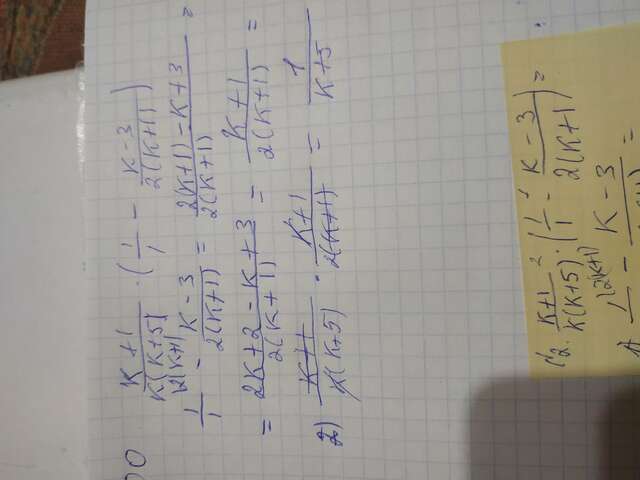 00 K+1/K(K+5) · (1/1 - K-3/2(K+1))
1/1 \2(K+1) - K-3/2(K+1) = 2(K+1)-K+3/2(K+1) =
= 2K+2-K+3/2(K+1) = K+1/2(K+1) =
2) K+1/(K+5) · K+1/2(K+1) = 1/K+5
2. K+1/K(K+5) · (1/1 - K-3/2(K+1)) =
1) 1/ \2(K+1) - K-3/ =